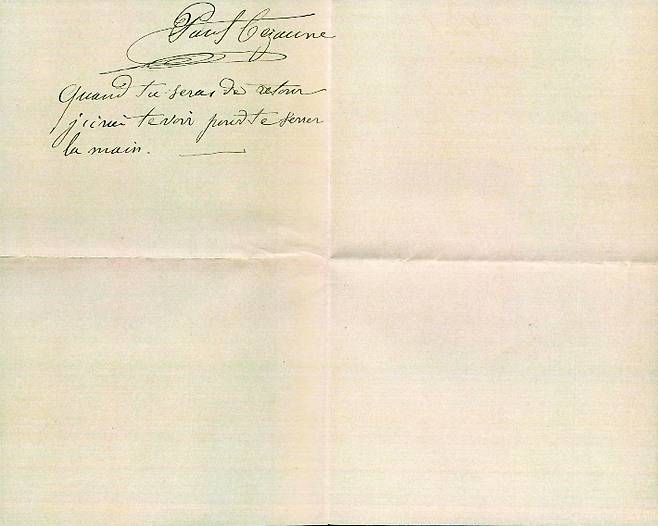 Paul Cezanne
Quand tu seras de retour
j'irai te voir pour te serrer
la main.